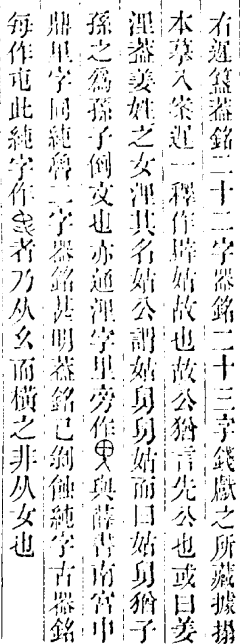 右遲簋蓋銘二十二字器銘二十三字錢獻之所藏據搨
本摹入宋遲一釋作姑故也故公猶言先公也或曰姜
浬蓋姜姓之女浬其名姑公謂姑舅舅姑而曰姑舅猶子
孫之為孫子倒文也亦通浬字里旁作與薛書南宮中
鼎里字同純魯二字器銘甚明蓋銘已剝蝕純字古器銘
每作屯此純字作者乃从幺而橫之非从女也